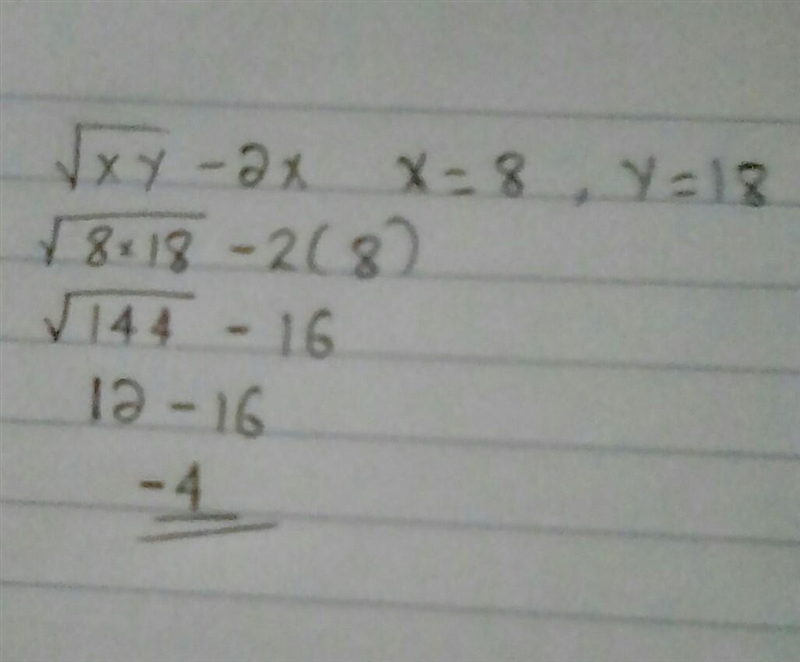 √xy - 2x x = 8 , y = 18
√8×18 - 2(8)
√144 - 16
12 - 16
-4